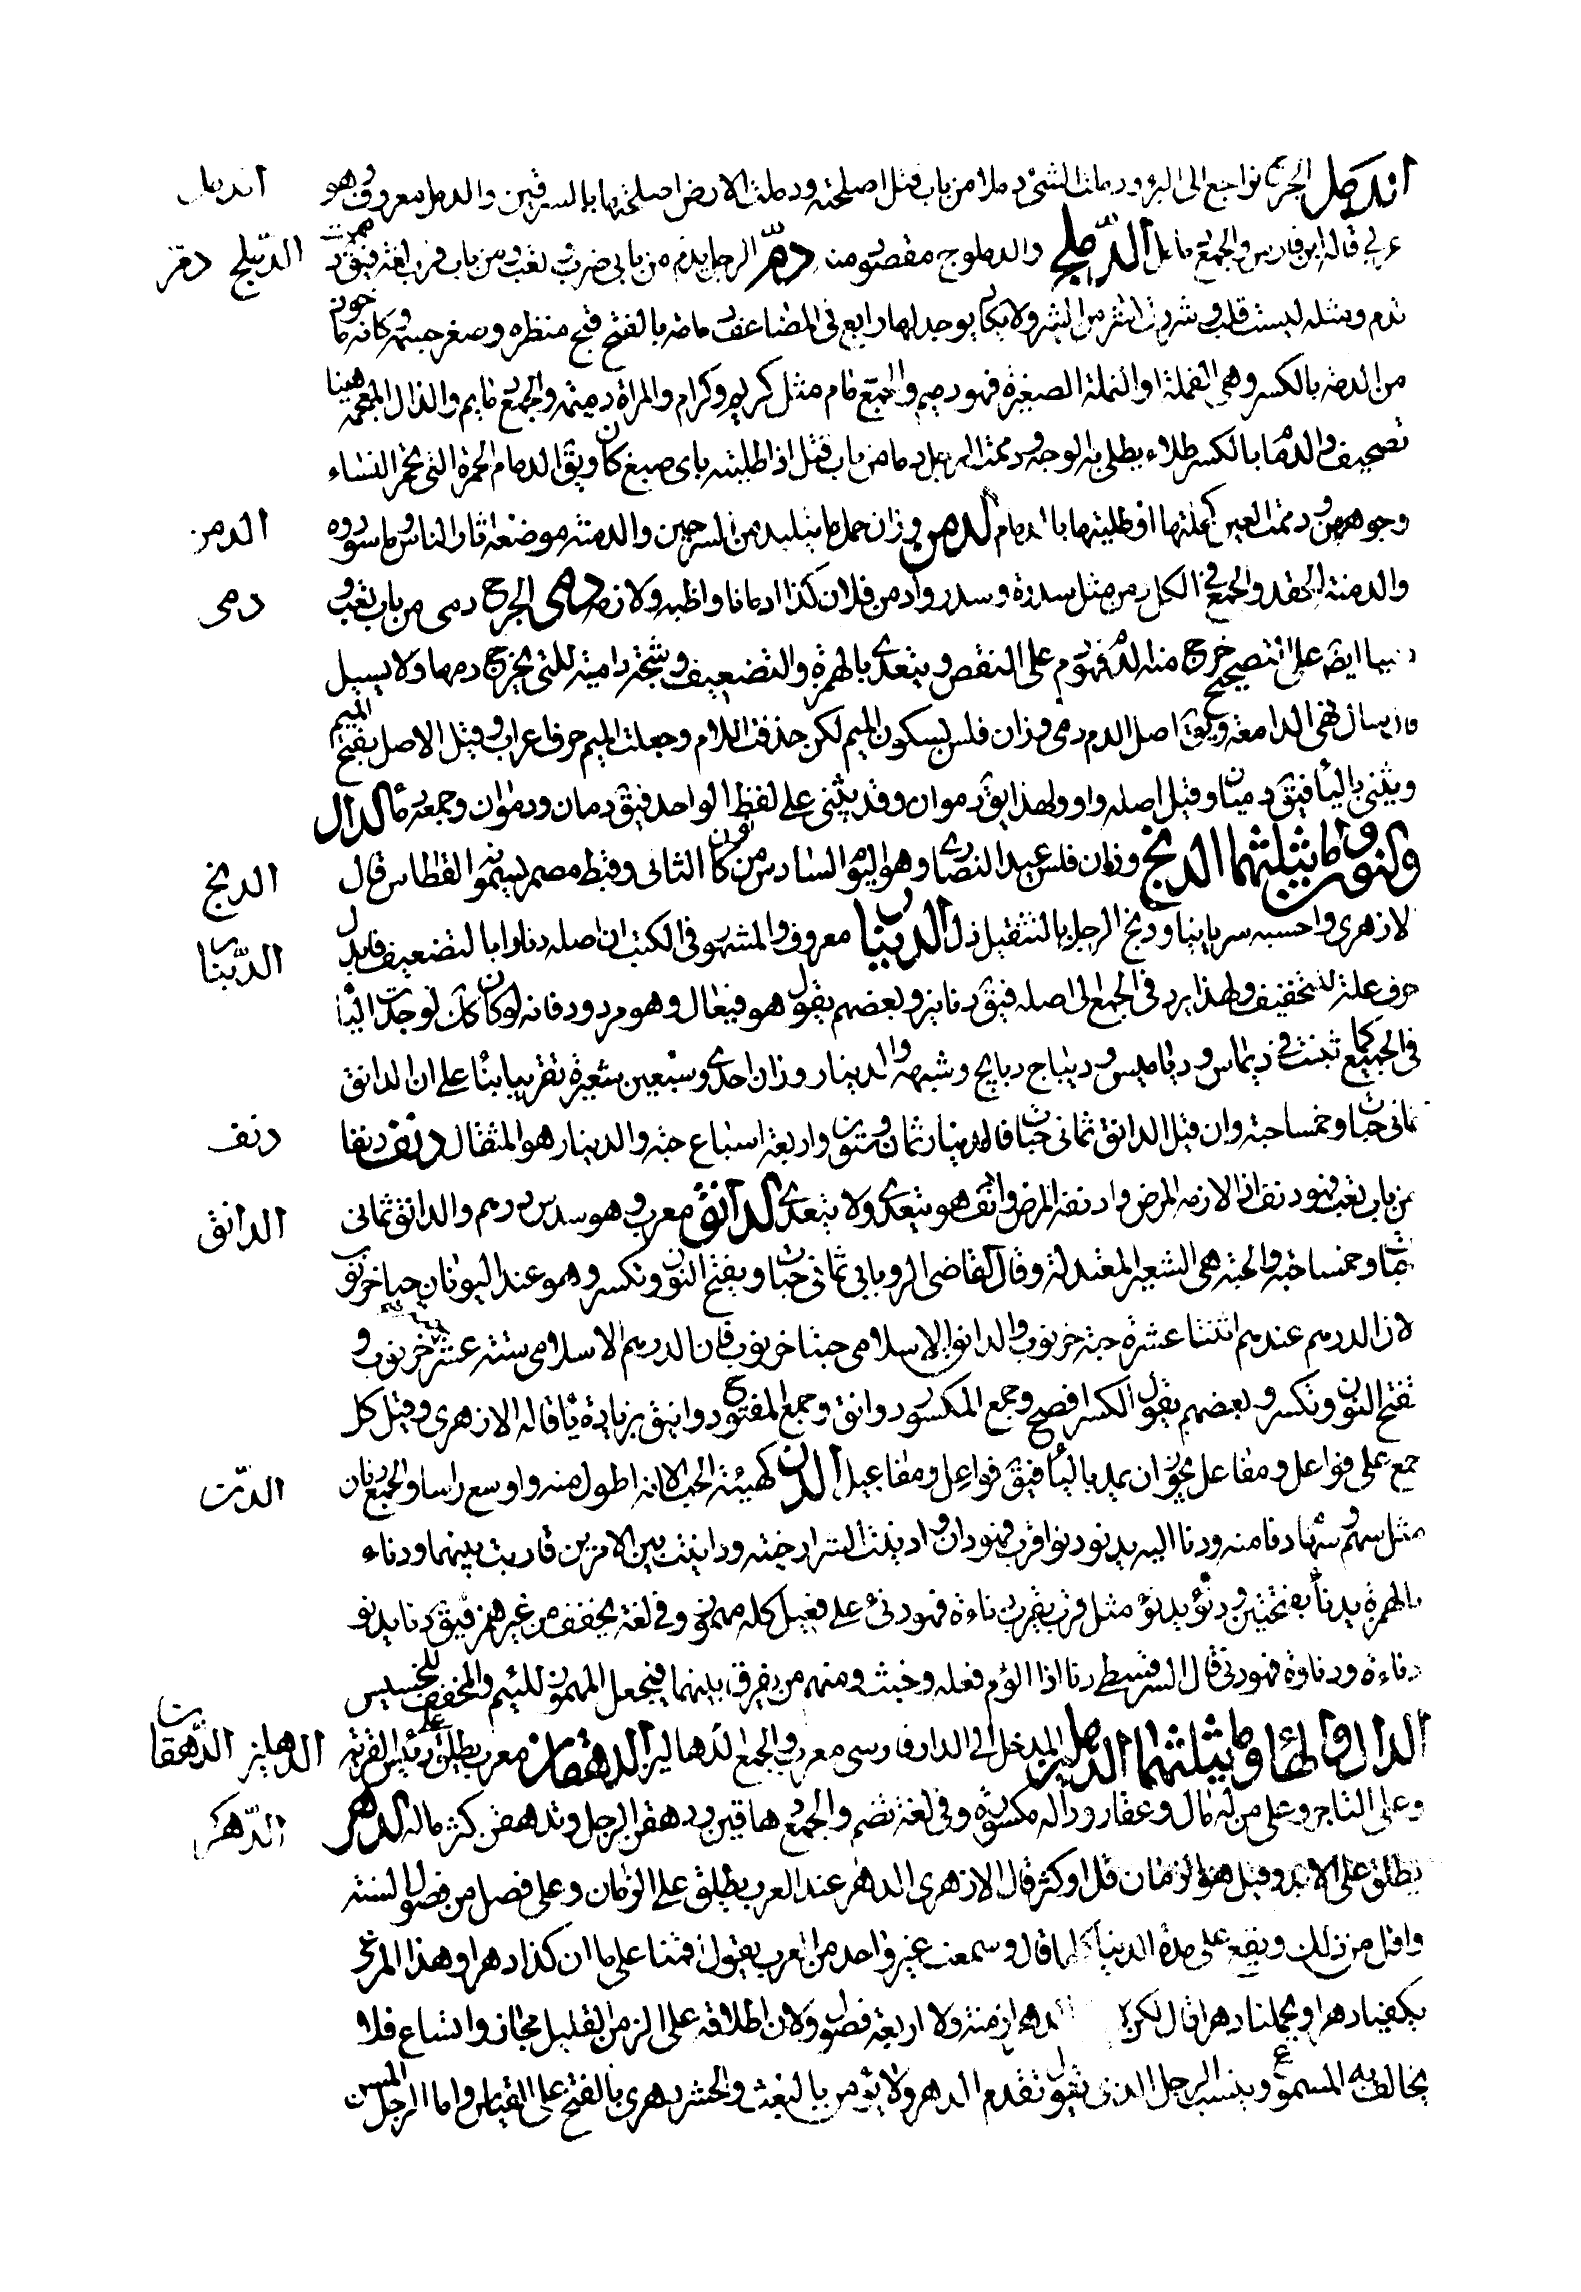 اندمل الجرح تراجع الى البرء ودملت الشئ دملا من باب قتل اصلحته ودملت الارض اصلحتها بالسرقين والدمل معروف وهو
اندمل
عربي قاله ابن فارس والجمع دمامل الدملج والدملوج مقصور منه دم الرجل يدم من بابى ضرب وتعب ومن باب قرب لغة فيق دممت
الدملج دم
تدم ومثله لببت تلب وشررت تشر من الشر ولا يكاد يوجد لها رابع فى المضاعف دمامة بالفتح قبح منظره وصغر جسمه وكانه ماخوذ
من الدمة بالكسر وهى القملة او النملة الصغيرة فهو دميم والجمع دمام مثل كريم وكرام والمراة دميمة والجمع دمايم والذال المعجمة هنا
تصحيف والدمام بالكسر طلاء يطلى به الوجه ودممت الرجل دما من باب قتل اذا طليته باى صبغ كان ويق الدمام الحمرة التى تحمر النساء
وجوههن ودممت العين كحلتها او طليتها بالدمام الدمن وزان حمل ما يتلبد من السرجين والدمنة موضعه اثار الناس وما سودوه
الدمن
والدمنة الحقد والجمع فى الكل دمن مثل سدرة وسدر وادمن فلان كذا ادمانا واظبه ولازمه دمى الجرح دمى من باب تعب و
دمى
دميها ايضا على التصحيح خرج منه الدم فهو دم على النقص ويتعدى بالهمزة والتضعيف وشجة دامية للتى يخرج دمها ولا يسيل
فان سال فهى الدامعة ويق اصل الدم دمى وزان فلس بسكون الميم لكن حذفت اللام وجعلت الميم حرف اعراب وقيل الاصل بفتح الميم
ويثنى بالياء فيق دميان وقيل اصله واو ولهذا يق دموان وقد يثنى على لفظ الواحد فيق دمان ودموان وجمعه دماء الدال
والنون وما يثلثهما الدنح وزان فلس عيد النصارى وهو اليوم السادس من كانون الثانى وقبط مصر يسمونه القطاس قال
الدنح
الازهرى واحسبه سريانيا ودنح الرجل بالتثقيل ذل الدينار معروف والمشهور فى الكتب ان اصله دنار ابالتضعيف فابدل
الدينار
حرف علة للتخفيف ولهذا يرد فى الجمع الى اصله فيق دنانير وبعضهم يقول هو فيعال وهو مردود فانه لو كان كذلك لوجدت الياء
فى الجمع كما ثبتت فى ديماس ودياميس وديباج دبابيج وشبهه والدينار وزان احدى وسبعين شعيرة تقريبا بناء على ان الدانق
ثمانى حبات وخمسا حبة وان قيل الدانق ثمانى حبات فالدينار ثمان وستون واربعة اسباع حبة والدينار هو المثقال دنف دنفا
دنف
من باب تعب فهو دنف اذا لازمه المرض وادنفه المرض وادنف هو يتعدى ولا يتعدى الدانق معرب وهو سدس درهم والدانق ثمانى
الدانق
حبات وخمسا حبة والحبة هى الشعيرة المعتدلة وقال القاضى الرويانى ثمانى حبات وبفتح النون وتكسر وهو عند اليونان حبتا خرنوب
لان الدرهم عندهم اثنتا عشرة حبة خرنوب والدانق الاسلامى حبتا خرنوب فان الدرهم الاسلامى ستة عشر حبة خرنوب و
تفتح النون وتكسر وبعضهم يقول الكسر افصح وجمع المكسور دوانق وجمع المفتوح دوانيق بزيادة ياء قاله الازهرى وقيل كل
جمع على فواعل ومفاعل يجوز ان يمد بالياء فيق فواعيل ومفاعيل الدن كهيئة الحب الا انه اطول منه واوسع راسا والجمع دنان
الدن
مثل سهم وسهام دنا منه ودنا اليه يدنو دنوا قرب فهو دان وادنيت الستر ارخيته ودانيت بين الامرين قاربت بينهما ودناء
بالهمزة يدنأ بفتحتين ودنؤ يدنؤ مثل قرب يقرب دناءة فهو دنئ على فعيل كله مهموز وفى لغة يخفف من غير همز فيق دنا يدنو
دناءة ودناوة فهو دنى قال السرقسطى دنا اذا لؤم فعله وخبث ومنهم من يفرق بينهما فيجعل المهموز للئيم والمخفف للخسيس
الدال والهاء وما يثلثهما الدهليز المدخل الى الدار فارسى معرب والجمع الدهاليز الدهقان معرب يطلق على رئيس القرية
الدهليز الدهقان
وعلى التاجر وعلى من له مال وعقار وداله مكسورة وفى لغة تضم والجمع دهاقين ودهقن الرجل وتدهقن كثر ماله الدهر
الدهر
يطلق على الابد وقيل هو الزمان قل او كثر قال الازهرى الدهر عند العرب يطلق على الزمان وعلى فصل من فصول السنة
واقل من ذلك ويقع على مدة الدنيا كلها قال وسمعت غير واحد من العرب يقول اقمنا على ماء كذا دهرا وهذا المرعى
يكفينا دهرا ويحملنا دهرا قال لكن لا الدهر ازمنة ولا اربعة فصول ولان اطلاقه على الزمن القليل مجاز واتساع فلا
يخالف به المسموع وينسب الرجل الذى يقول بقدم الدهر ولا يؤمن بالبعث والحشر دهرى بالفتح على القياس واما الرجل المسن